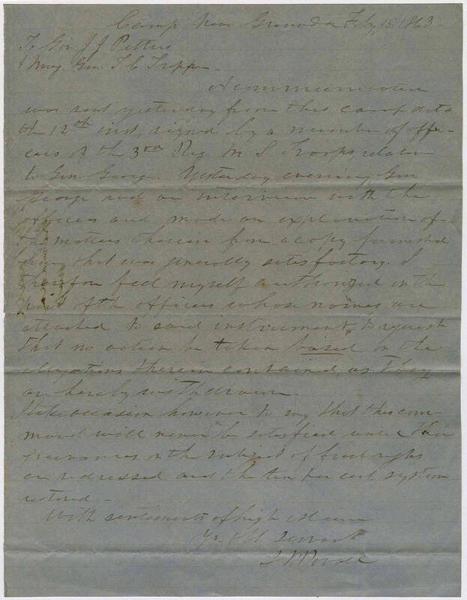 Camp Near Grenada Feby 15 1863
To Gov J. J. Pettus
& Maj Gen T C Tropp
A communication
was sent yesterday from this camp dated
the 12th inst, signed by a number of offi-
cers of the 3rd Reg M S Troops relative
to Gen George. Yesterday evening Gen
George had an interview with the
officers and made an explanation of
the matters therein from a copy furnished
him that was generally satisfactory. I
therefore feel myself authorized on the
part of the officers whose names are
attached to said instrument, to request
that no action be taken based on the
allegations therein contained, as they
are hereby withdrawn.
occasion however to say that this com-
mand will never be satisfied under their
grievances on the subject of furloughs
are redressed and the ten per cent system
restored -
With sentiments of high esteem
Yr Obt Servant